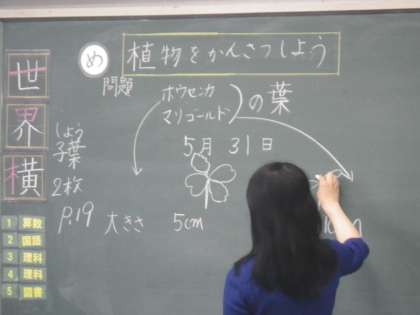 め 植物をかんさつしよう
問題
ホウセンカ
マリゴールド
の葉
5月 31日
世
界
横
しょう
子葉
2枚
P.19 大きさ 5cm
1 算数
2 国語
3 理科
4 理科
5 図書